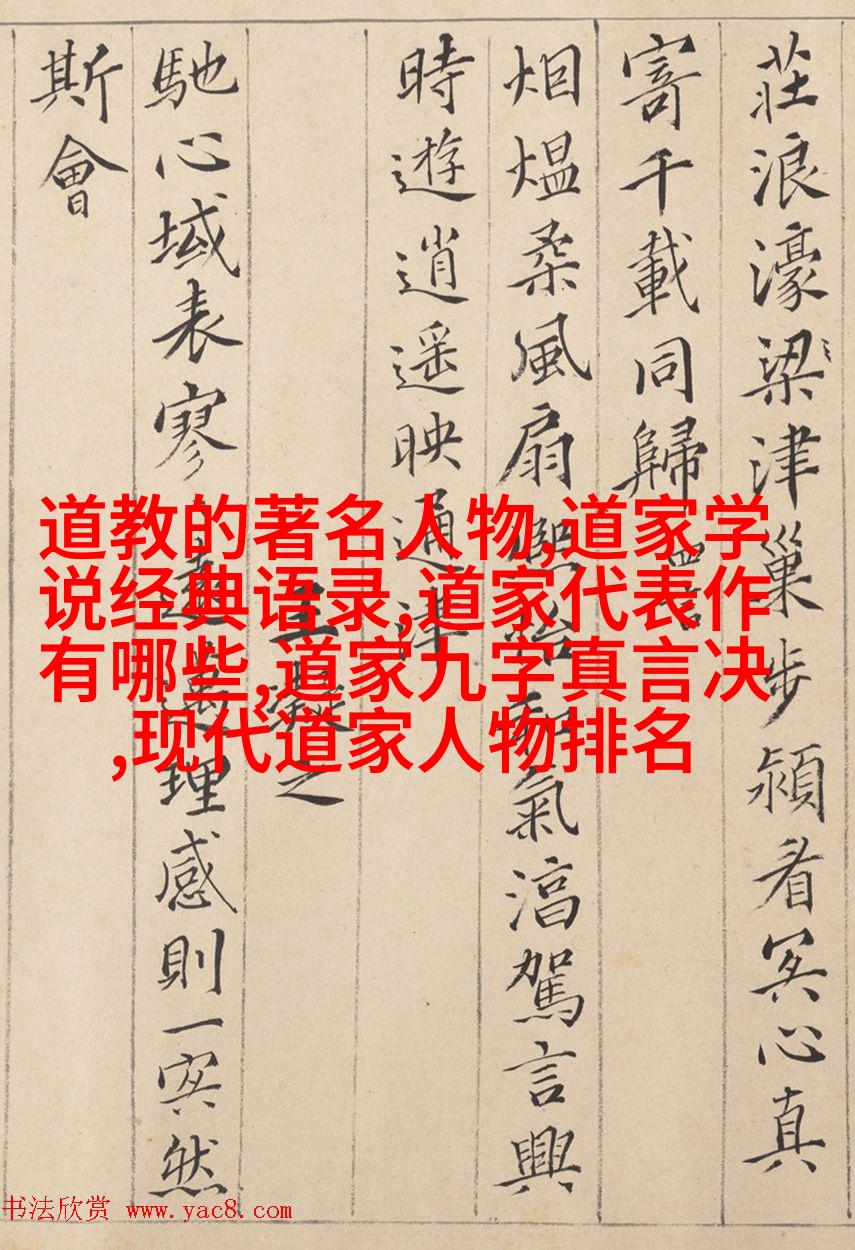 莊浪濠梁津巢步潁冥心真
寄千載同歸
烟煴柔風扇熙怡和氣淳駕言興
時遊逍遥映通津
王凝之
馳心域表寥遠邁理感則一冥然
斯會
道教的著名人物,道家学
说经典语录,道家代表作
有哪些,道家九字真言决
,现代道家人物排名
书法欣赏 www.yac8.com